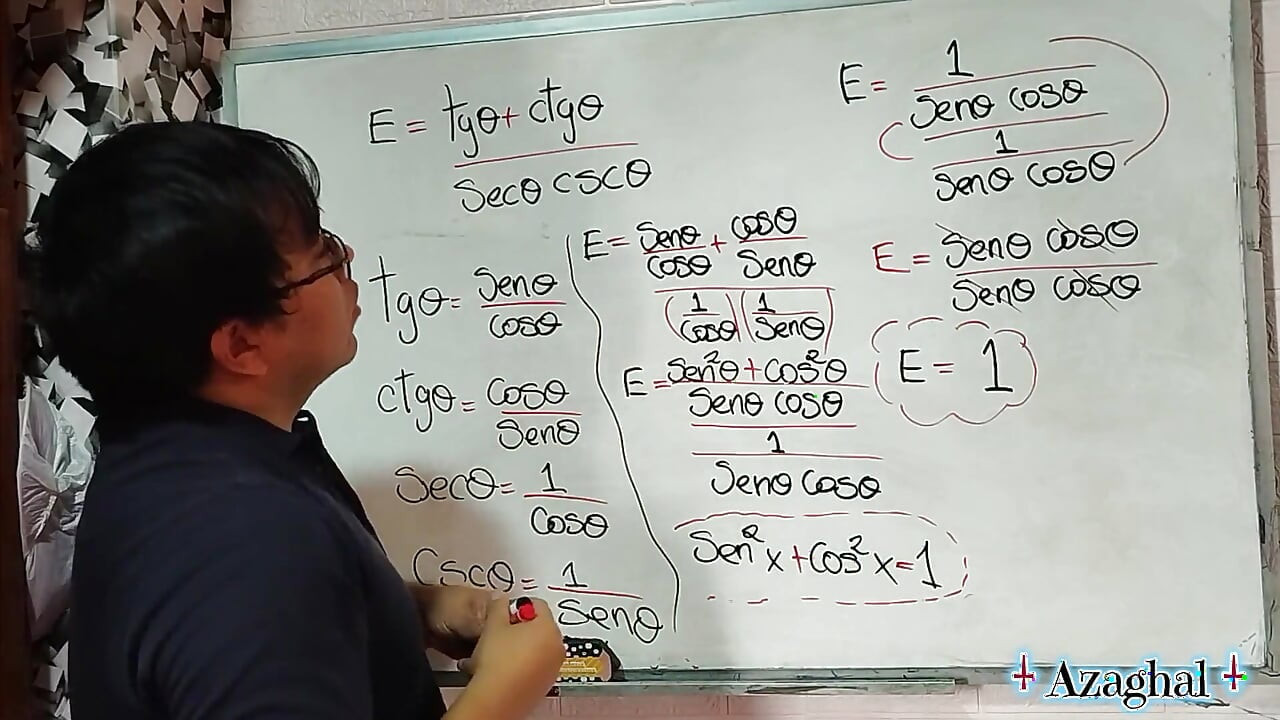 E = tgθ + ctgθ
secθ cscθ
tgθ = senθ
cosθ
ctgθ = cosθ
senθ
secθ = 1
cosθ
cscθ = 1
senθ
E = senθ + cosθ
cosθ senθ
(1) (1)
cosθ senθ
E = sen²θ + cos²θ
senθ cosθ
1
senθ cosθ
sen²x + cos²x = 1
E = 1
senθ cosθ
1
senθ cosθ
E = senθ cosθ
senθ cosθ
E = 1
Azaghal